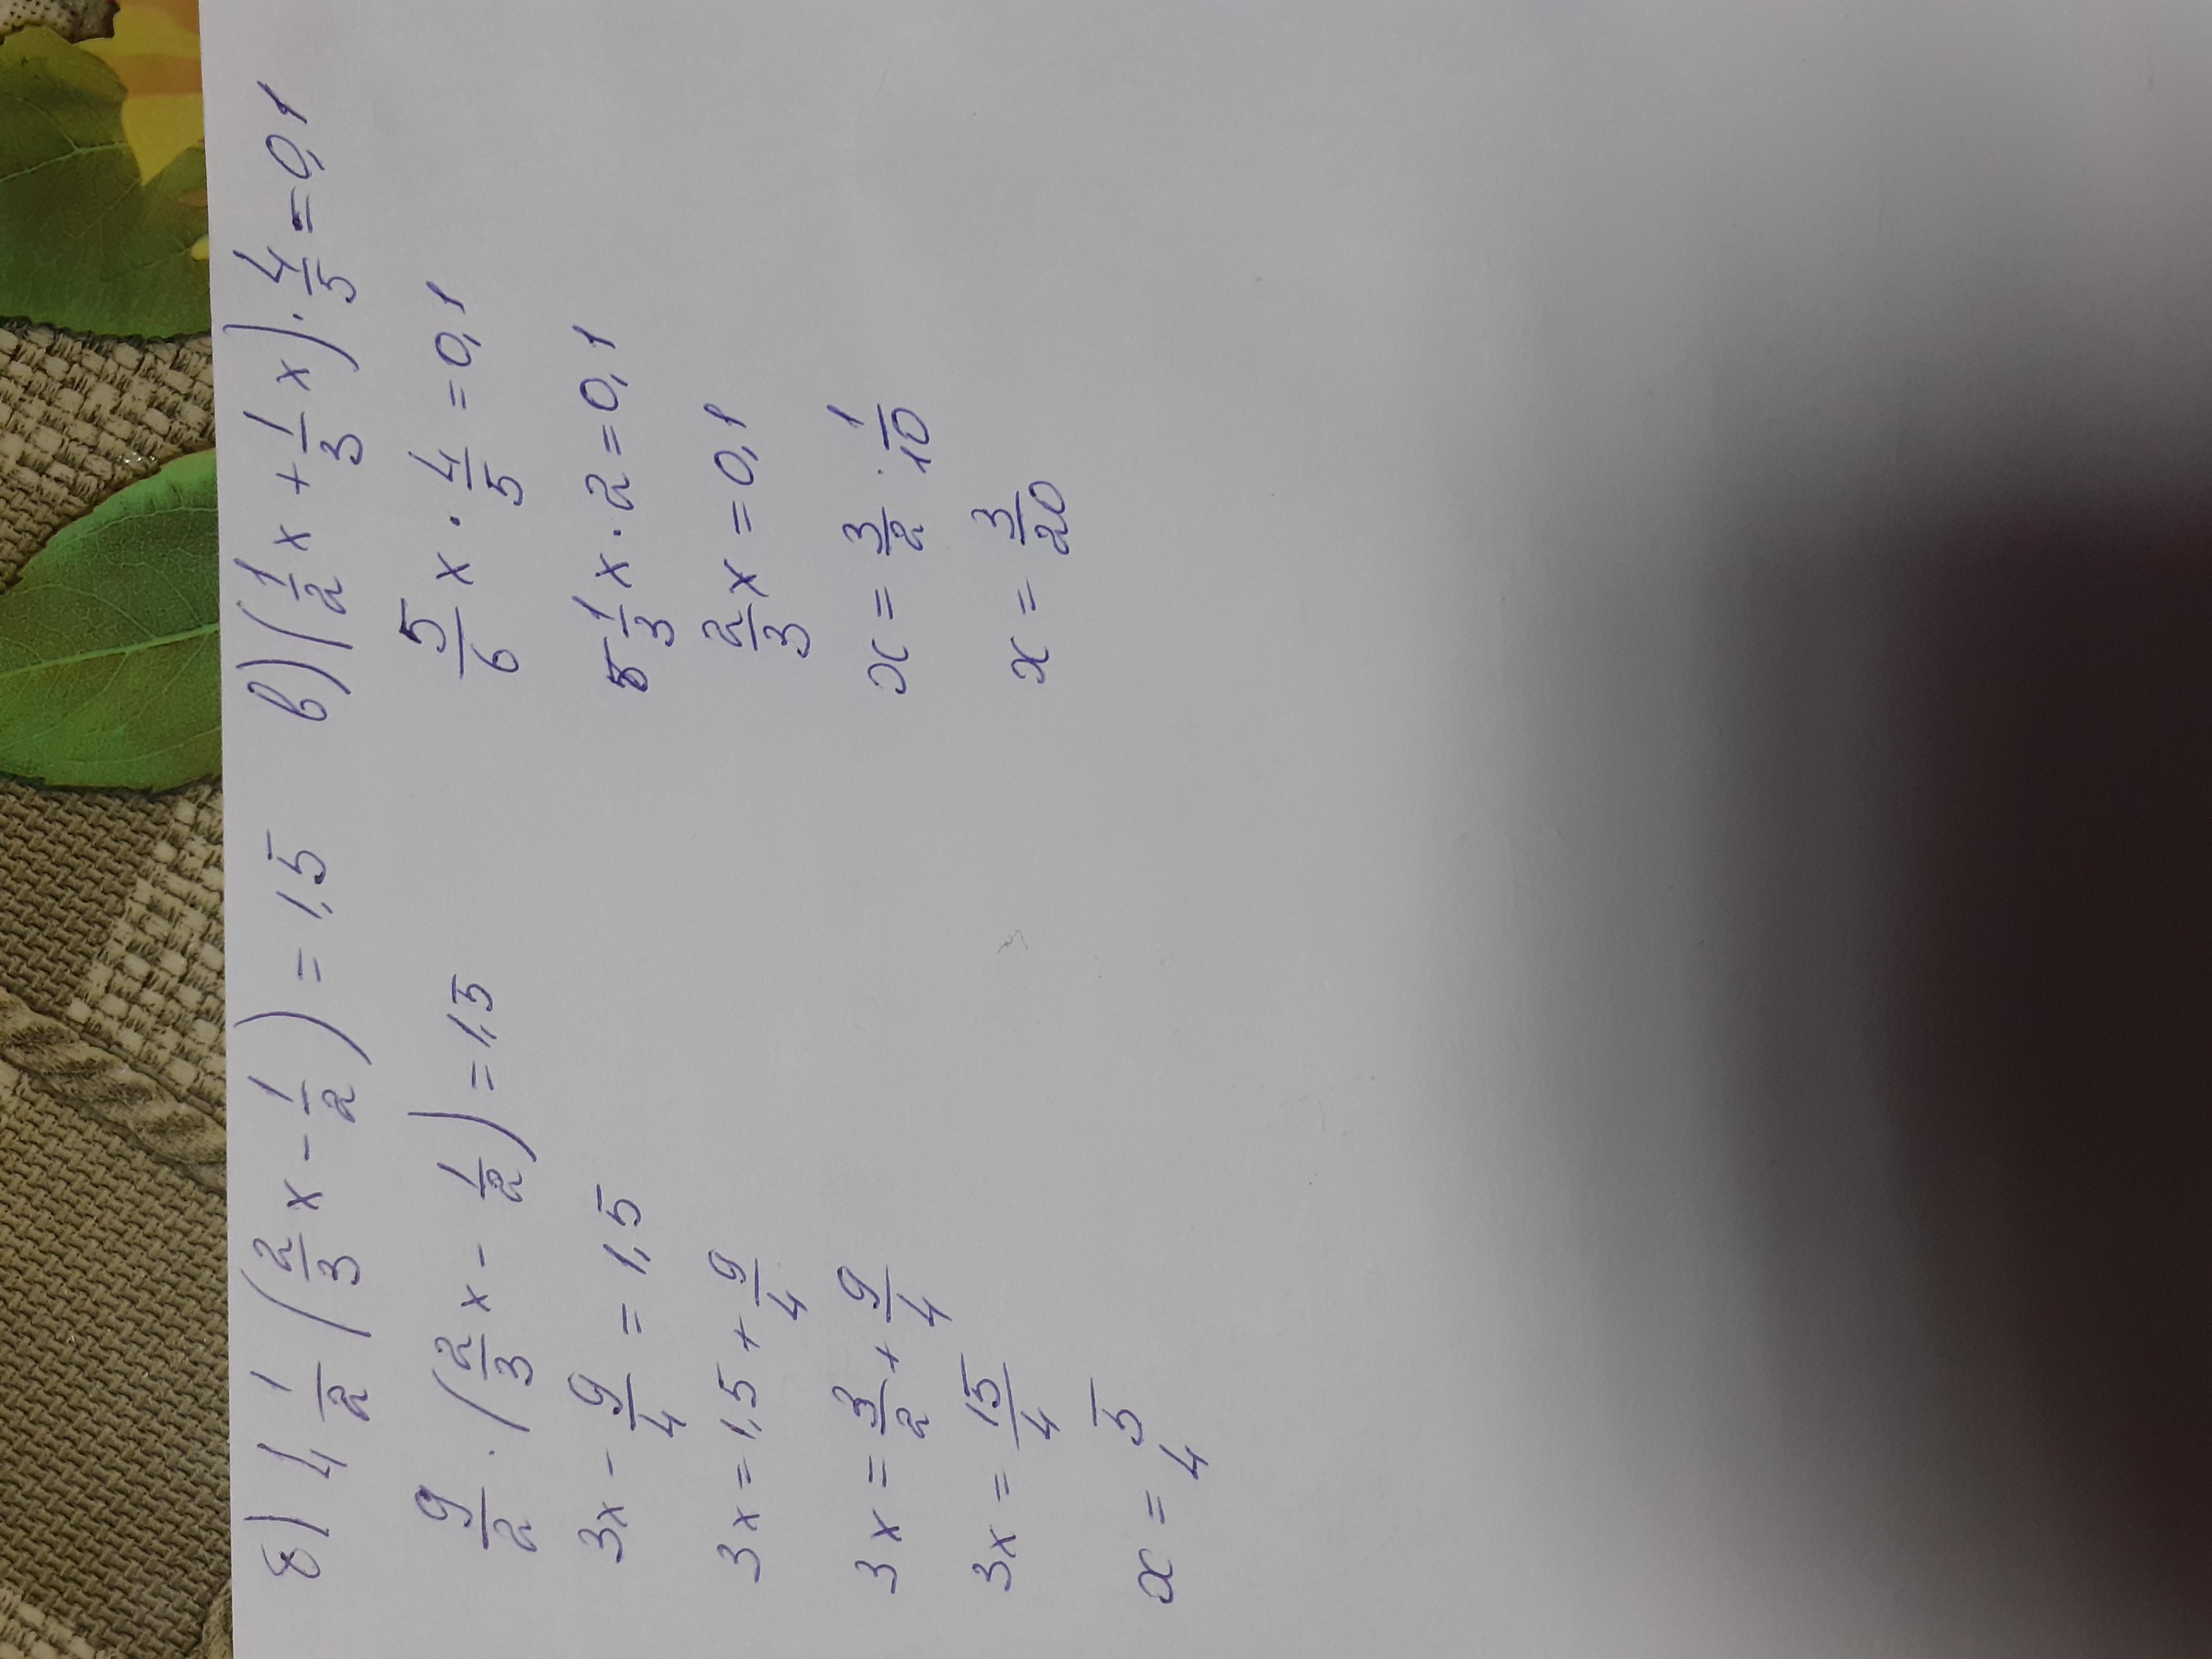 б) 4 1/2 (2/3 x - 1/2) = 1,5
9/2 · (2/3 x - 1/2) = 1,5
3x - 9/4 = 1,5
3x = 1,5 + 9/4
3x = 3/2 + 9/4
3x = 15/4
x = 5/4
в) (1/2 x + 1/3 x) · 4/5 = 0,1
5/6 x · 4/5 = 0,1
1/3 x · 2 = 0,1
2/3 x = 0,1
x = 3/2 · 1/10
x = 3/20